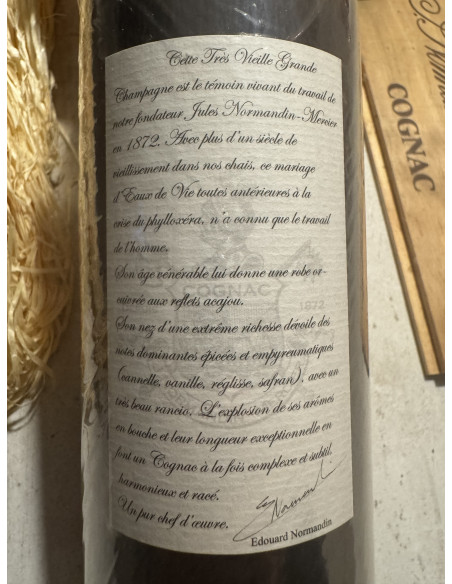 Cette Très Vieille Grande
Champagne est le témoin vivant du travail de
notre fondateur Jules Normandin-Mercier
en 1872. Avec plus d'un siècle de
vieillissement dans nos chais, ce mariage
d'Eaux de Vie toutes antérieures à la
crise du phylloxéra, n'a connu que le travail
de l'homme.
Son âge vénérable lui donne une robe or-
cuivrée aux reflets acajou.
Son nez d'une extrême richesse dévoile des
notes dominantes épicées et empyreumatiques
(cannelle, vanille, réglisse, safran), avec un
très beau rancio. L'explosion de ses arômes
en bouche et leur longueur exceptionnelle en
font un Cognac à la fois complexe et subtil,
harmonieux et racé.
Un pur chef d'œuvre.
Edouard Normandin
COGNAC
1872
COGNAC